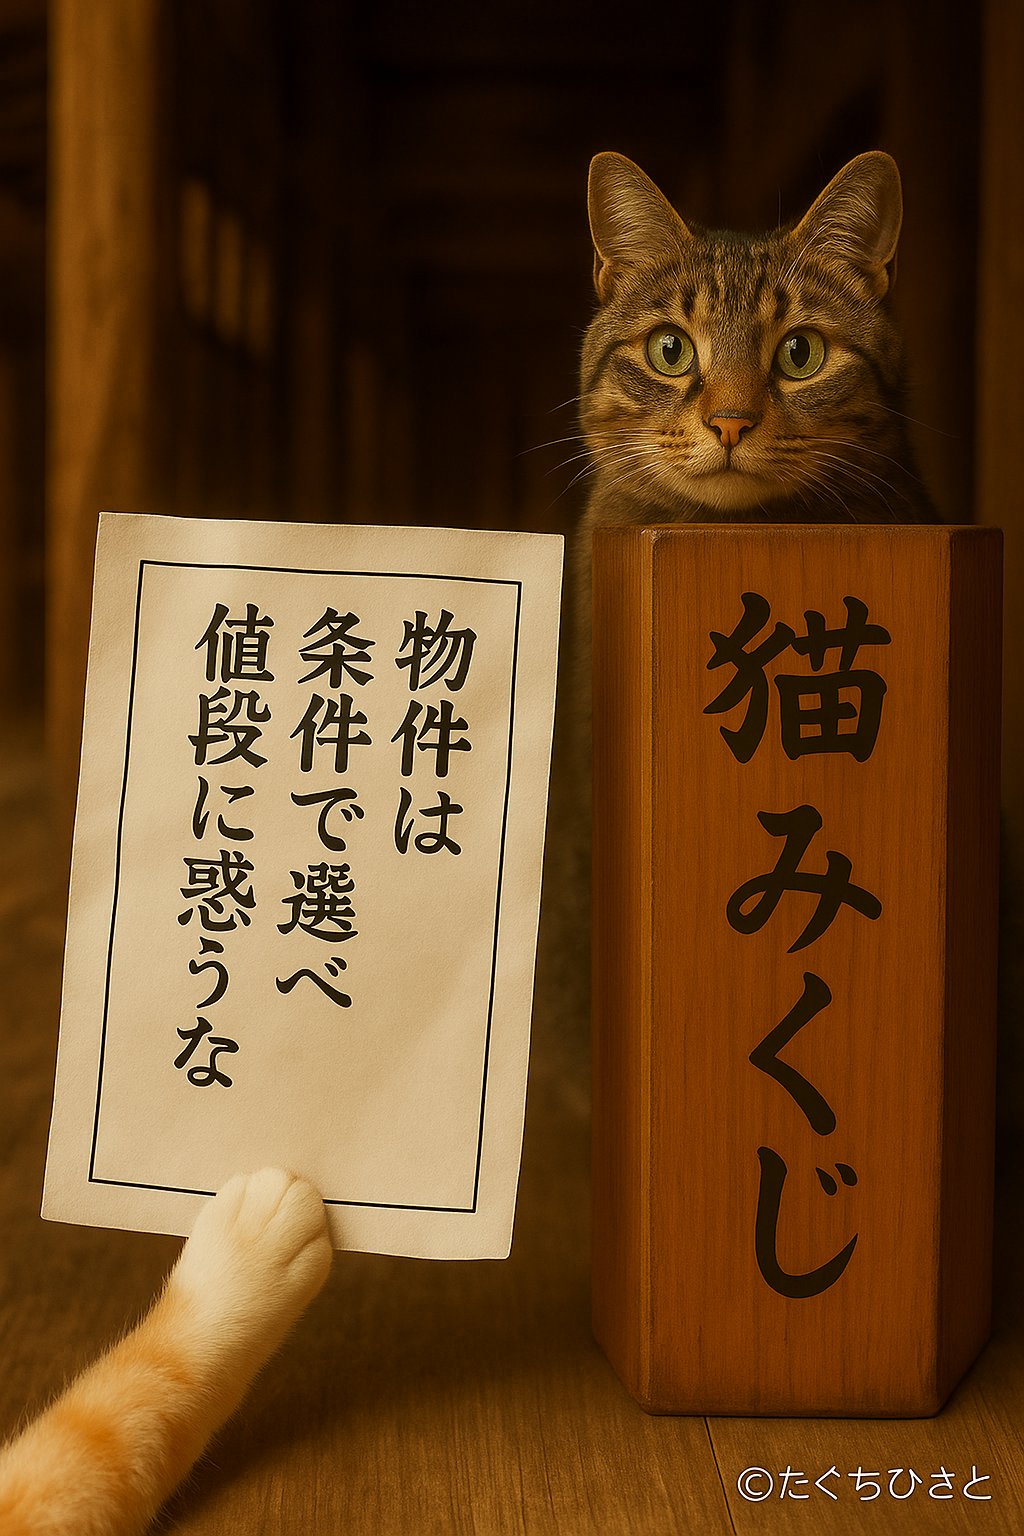 物件は
条件で選べ
値段に惑うな
猫みくじ
©たぐちひさと